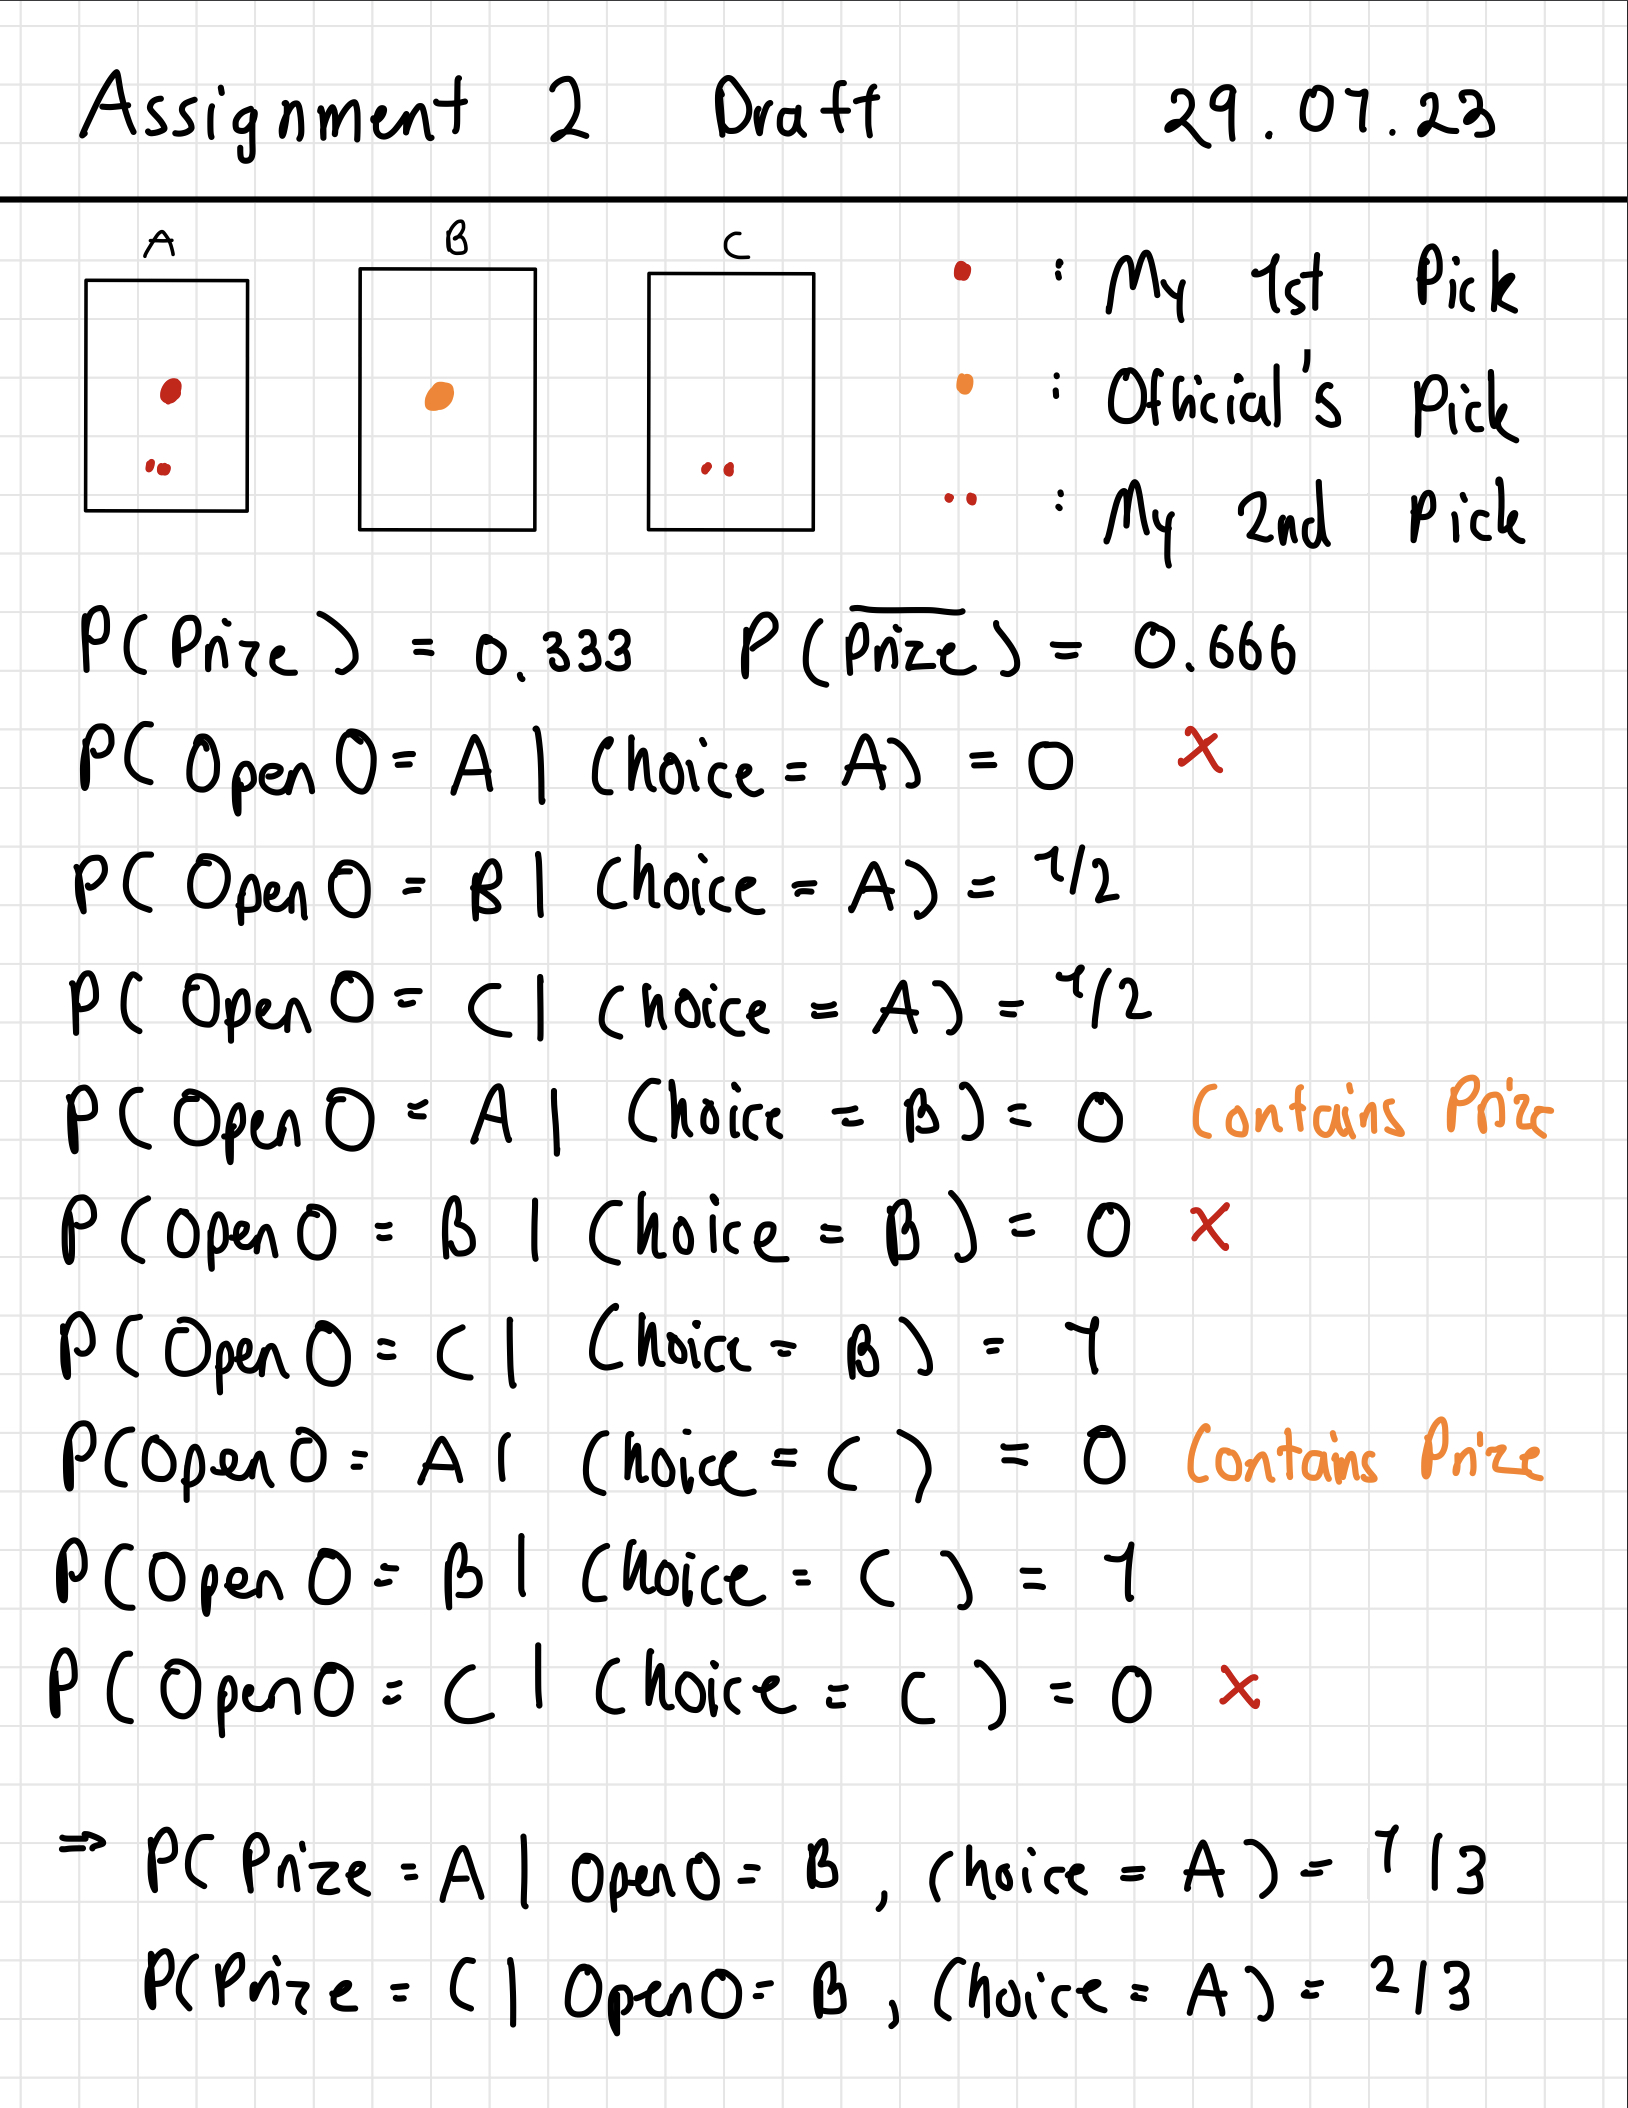 Assignment 2 Draft 29.07.23
A B C
: My 1st Pick
: Official's Pick
: My 2nd Pick
P(Prize) = 0.333 P(P̅r̅i̅z̅e̅) = 0.666
P(OpenO = A | Choice = A) = 0 X
P(OpenO = B | Choice = A) = 1/2
P(OpenO = C | Choice = A) = 1/2
P(OpenO = A | Choice = B) = 0 Contains Prize
P(OpenO = B | Choice = B) = 0 X
P(OpenO = C | Choice = B) = 1
P(OpenO = A | Choice = C) = 0 Contains Prize
P(OpenO = B | Choice = C) = 1
P(OpenO = C | Choice = C) = 0 X
⇒ P(Prize = A | OpenO = B, Choice = A) = 1/3
P(Prize = C | OpenO = B, Choice = A) = 2/3